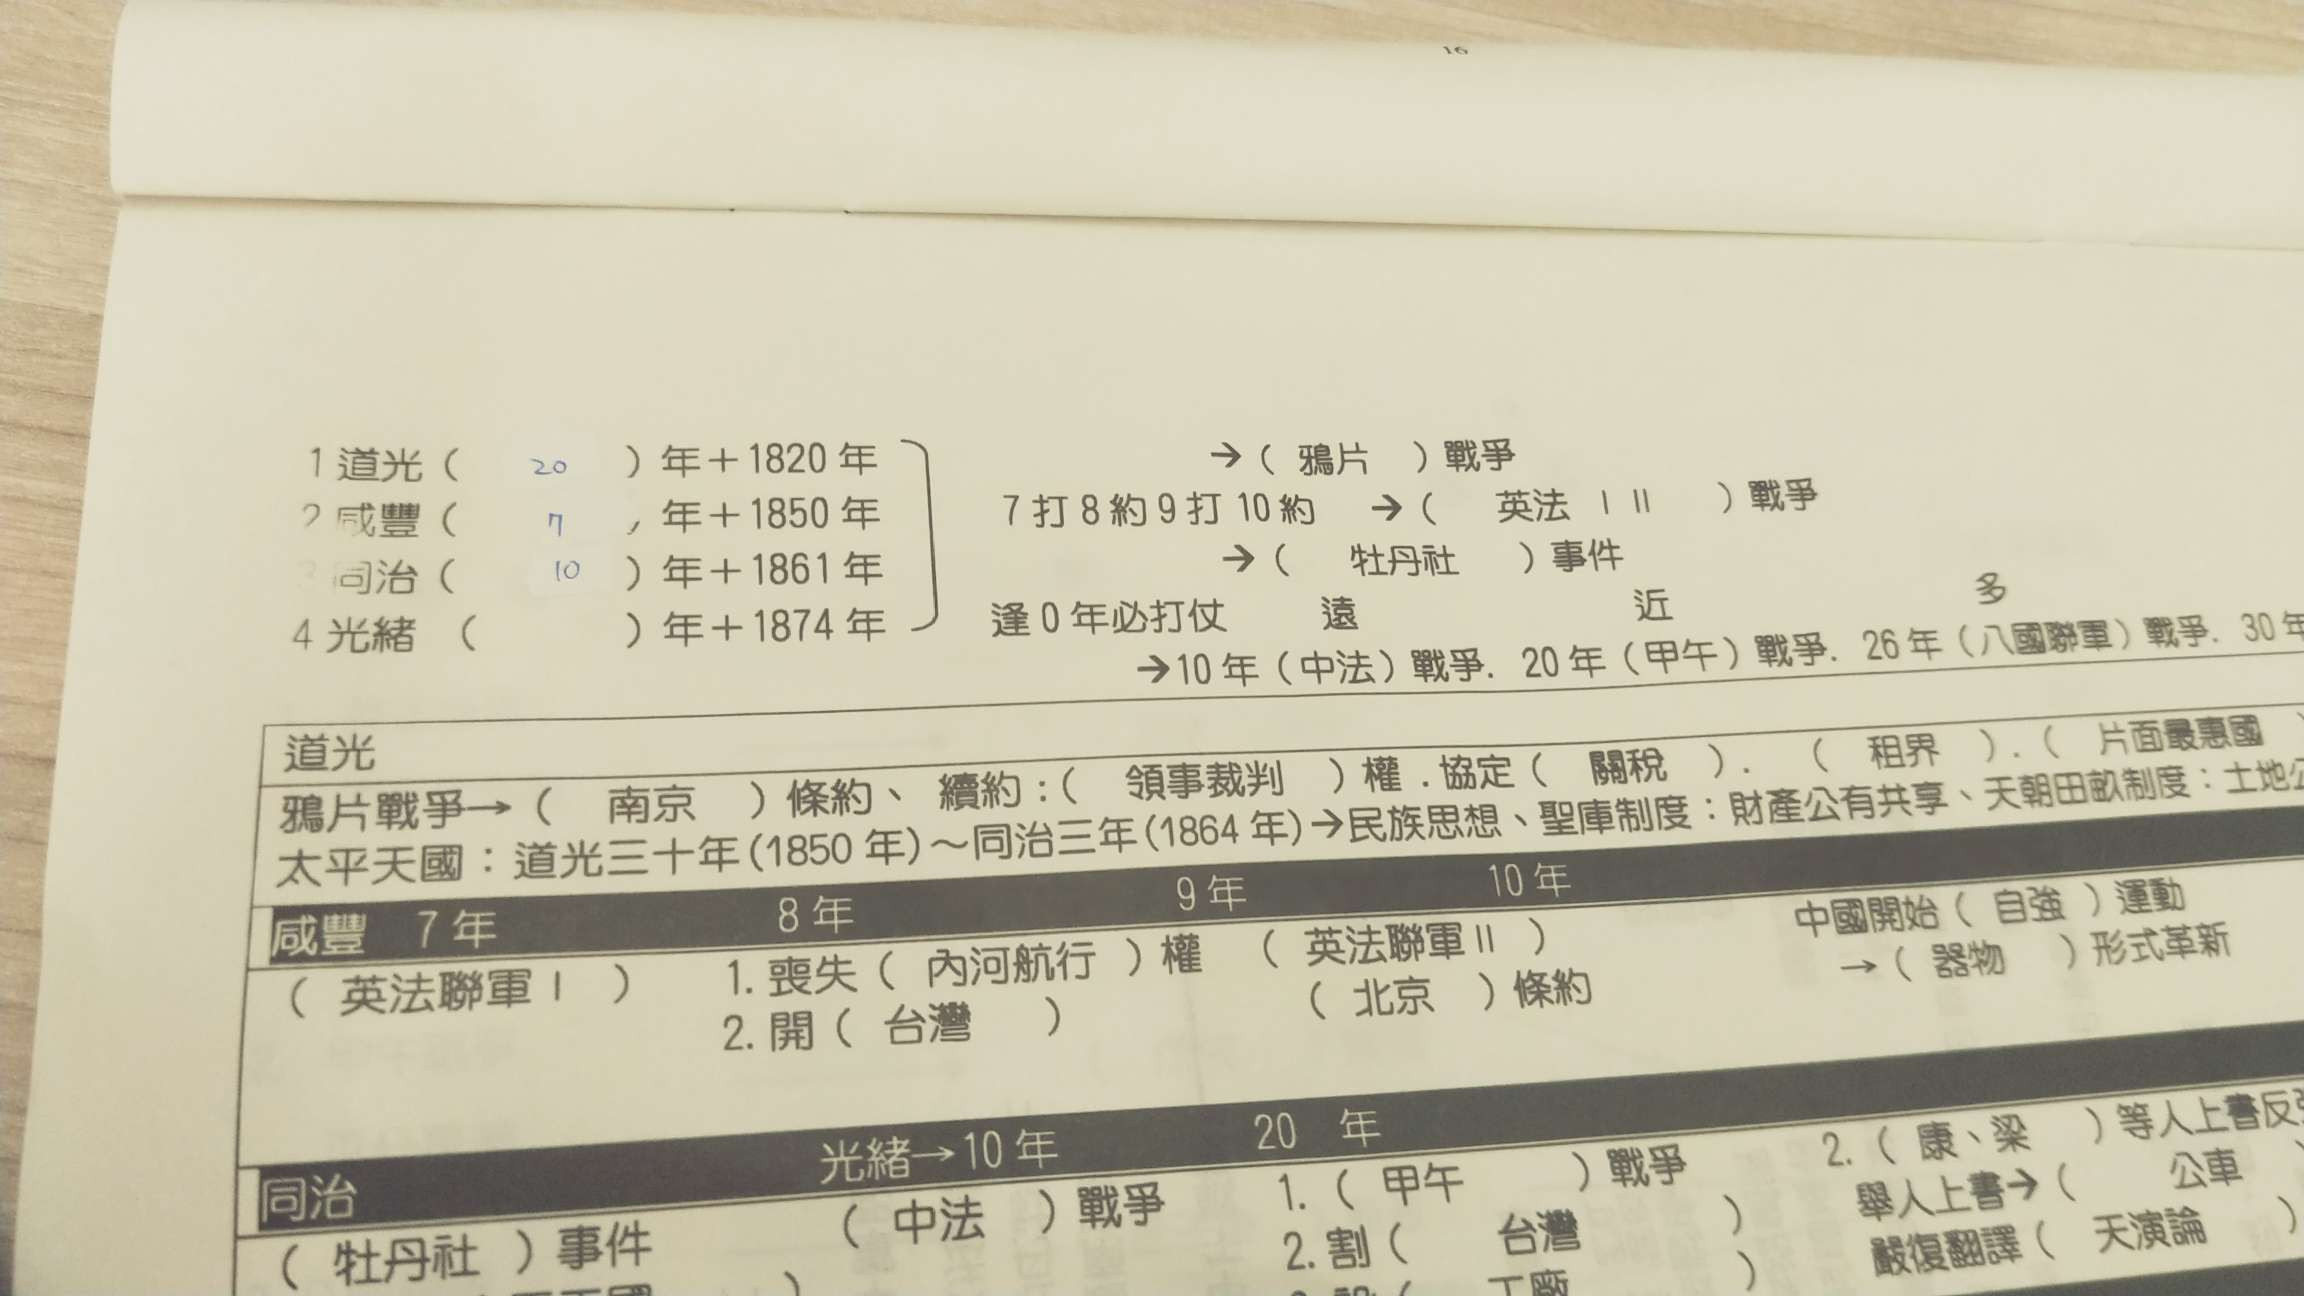 16
1 道光（ 20 ）年＋1820 年 →（ 鴉片 ）戰爭
2 咸豐（ 7 ）年＋1850 年 7 打 8 約 9 打 10 約 →（ 英法 I II ）戰爭
3 同治（ 10 ）年＋1861 年 →（ 牡丹社 ）事件
4 光緒（ ）年＋1874 年 逢 0 年必打仗 遠 近 多
→10 年（中法）戰爭. 20 年（甲午）戰爭. 26 年（八國聯軍）戰爭. 30 年
道光
鴉片戰爭→（ 南京 ）條約、 續約：（ 領事裁判 ）權 . 協定（ 關稅 ）. （ 租界 ）.（ 片面最惠國 ）
太平天國：道光三十年(1850 年)～同治三年(1864 年)→民族思想、聖庫制度：財產公有共享、天朝田畝制度：土地公
咸豐 7 年 8 年 9 年 10 年
（ 英法聯軍 I ） 1. 喪失（ 內河航行 ）權 （ 英法聯軍 II ） 中國開始（ 自強 ）運動
2. 開（ 台灣 ） （ 北京 ）條約 →（ 器物 ）形式革新
同治 光緒→10 年 20 年
（ 牡丹社 ）事件 （ 中法 ）戰爭 1.（ 甲午 ）戰爭 2.（ 康、梁 ）等人上書反
2. 割（ 台灣 ） 舉人上書→（ 公車
工廠 ） 嚴復翻譯（ 天演論 ）